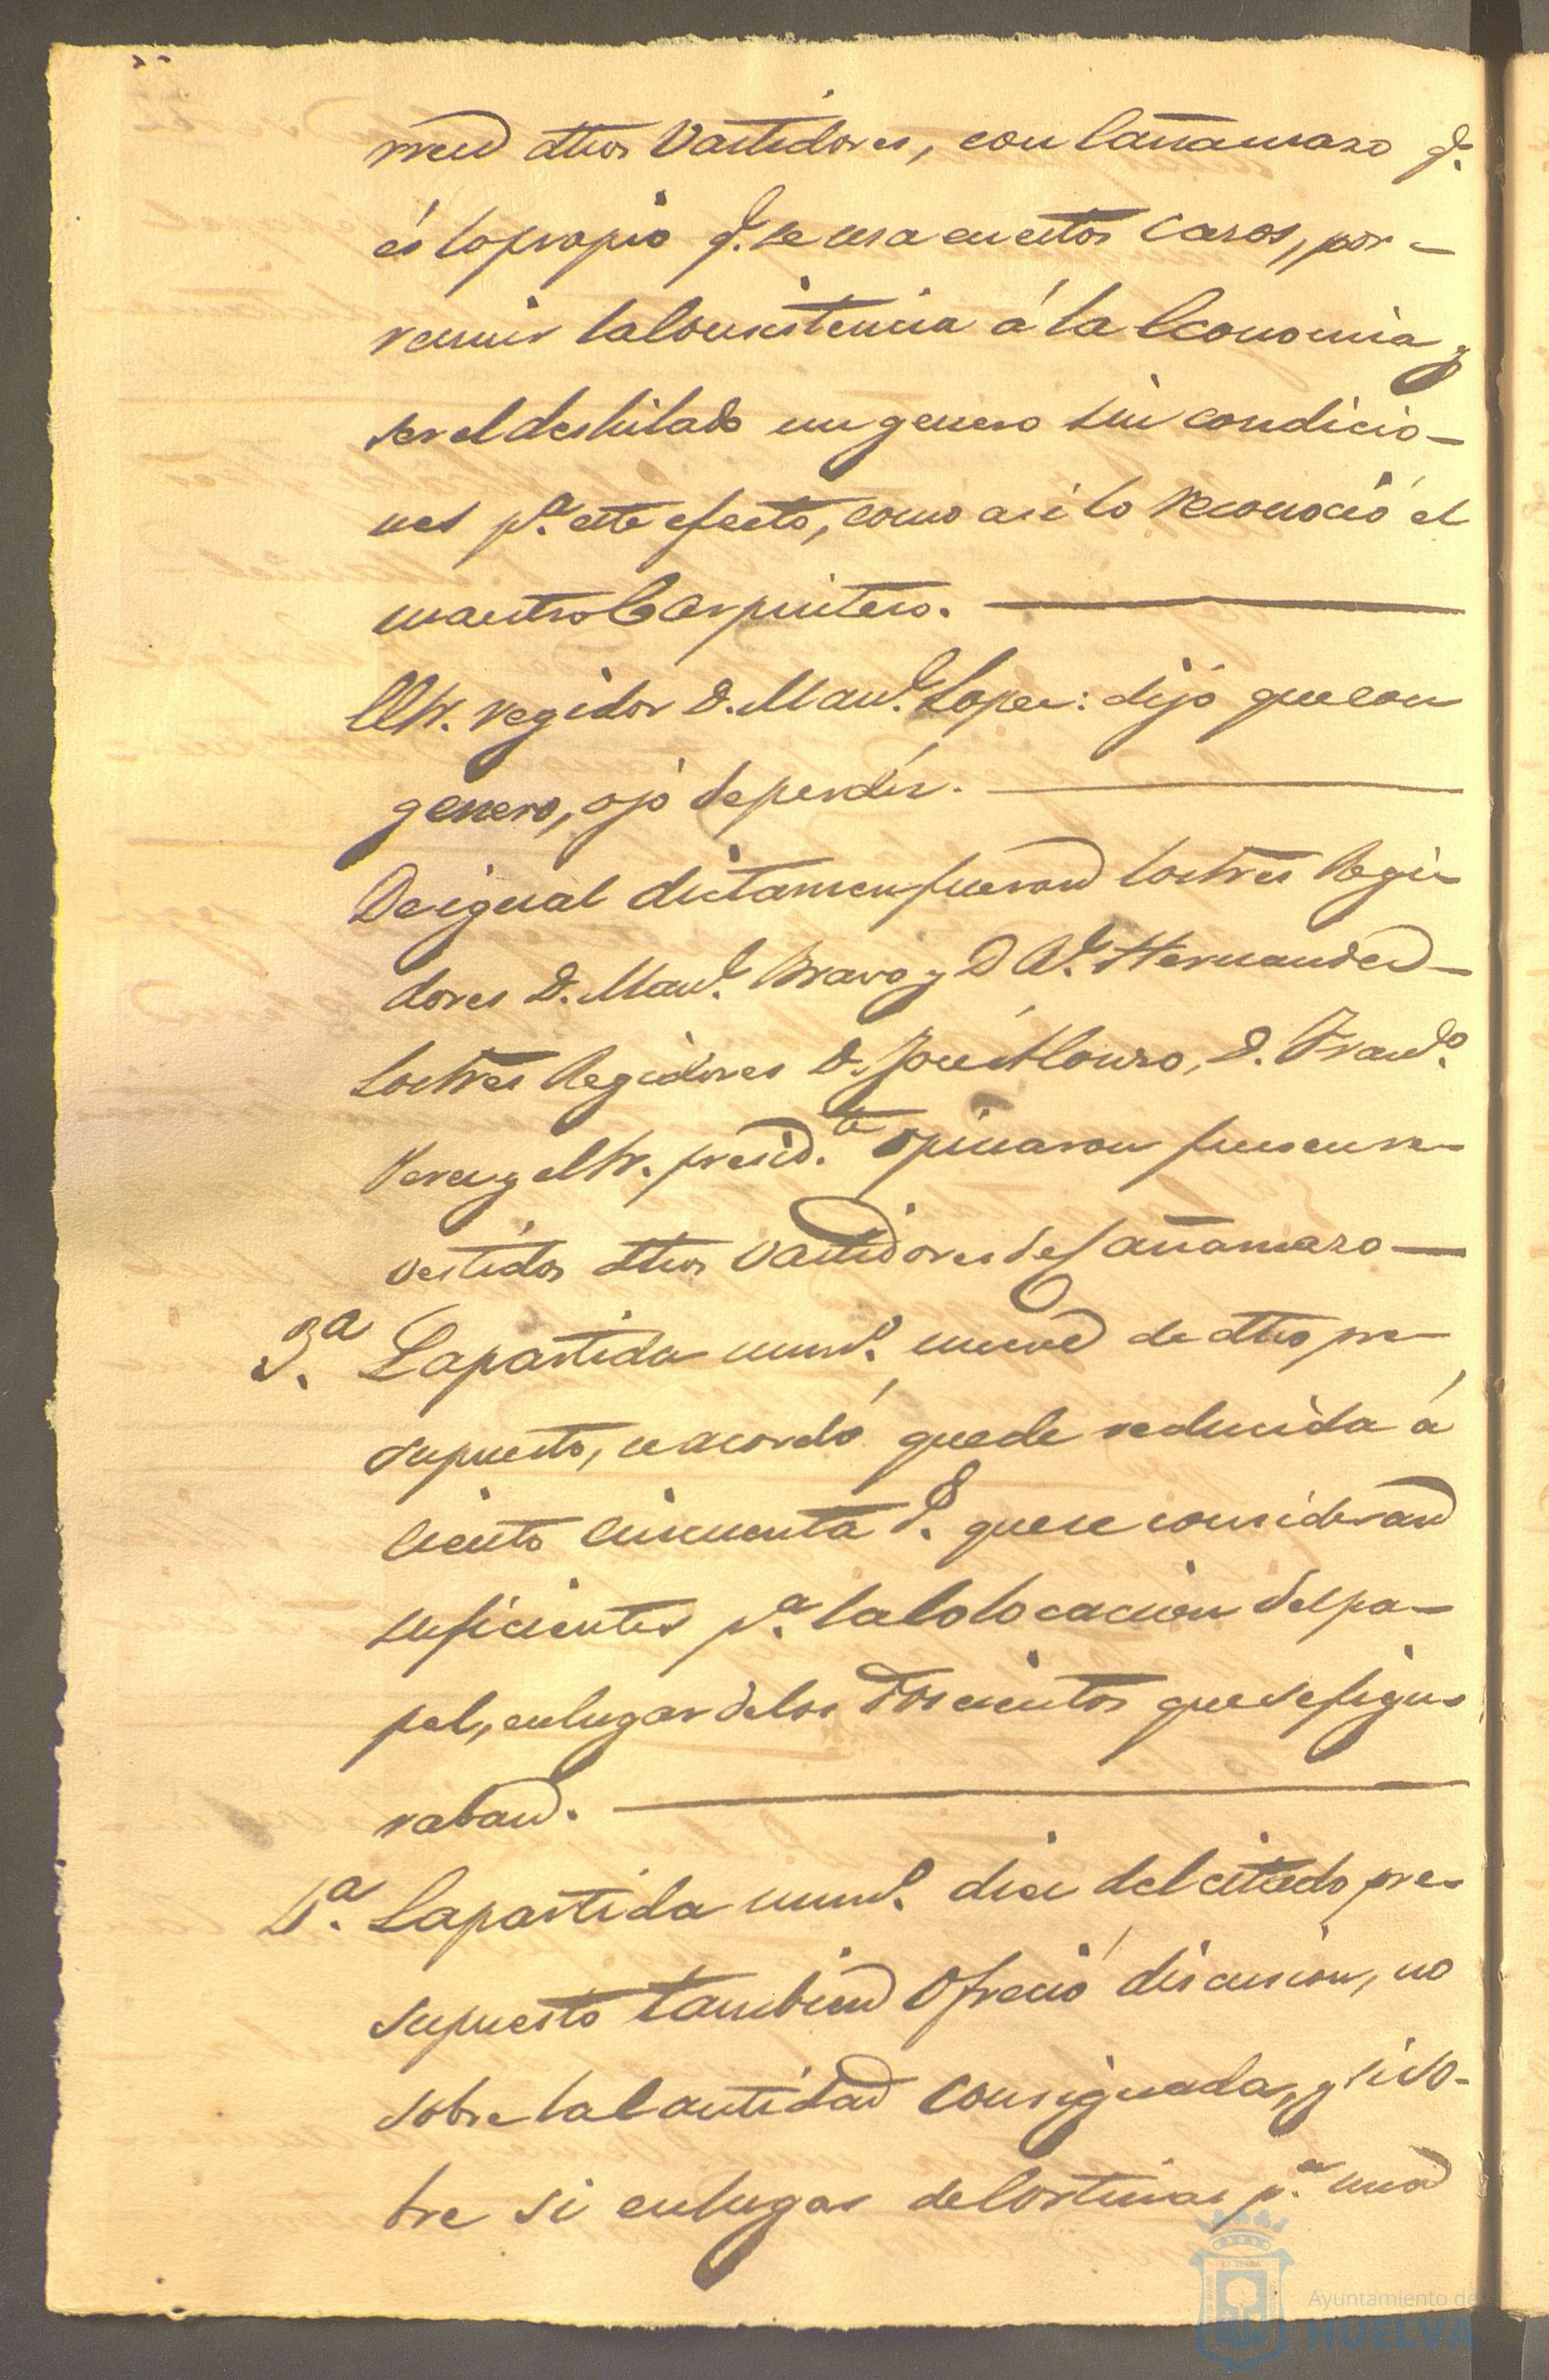 dhos Vastidores, con Cañamazo q.
és lo propio q.e se usa en estos casos, por
reunir la Consistencia á la Economia y
ser el deshilado un genero sin condicio-
nes p.a este efecto, como asi lo reconoció el
maestro Carpintero.
El Sr. regidor D. Man.l Lopez: dijo que con
genero,
De igual dictamen fueron los Sres Regi-
dores D. Man.l Bravo y D A.l Hernandez
Los Sres Regidores D. José Alonso, D. Fran.co
Perez y el Sr. presid.te opinaron fuesen re-
vestidos dhos Vastidores de Cañamazo
3.a La partida num.o nueve de dho pre-
supuesto, se acordó quede reducida á
Ciento Cincuenta r.s que se consideran
suficientes p.a la Colocacion del pa-
pel, en lugar de los Doscientos que se figu-
raban.
4.a La partida num.o diez del citado pre-
supuesto tambien Ofreció discusion, no
sobre la Cantidad Consignada, y si so-
bre si en lugar de Cortinas p.a
Ayuntamiento de
HUELVA